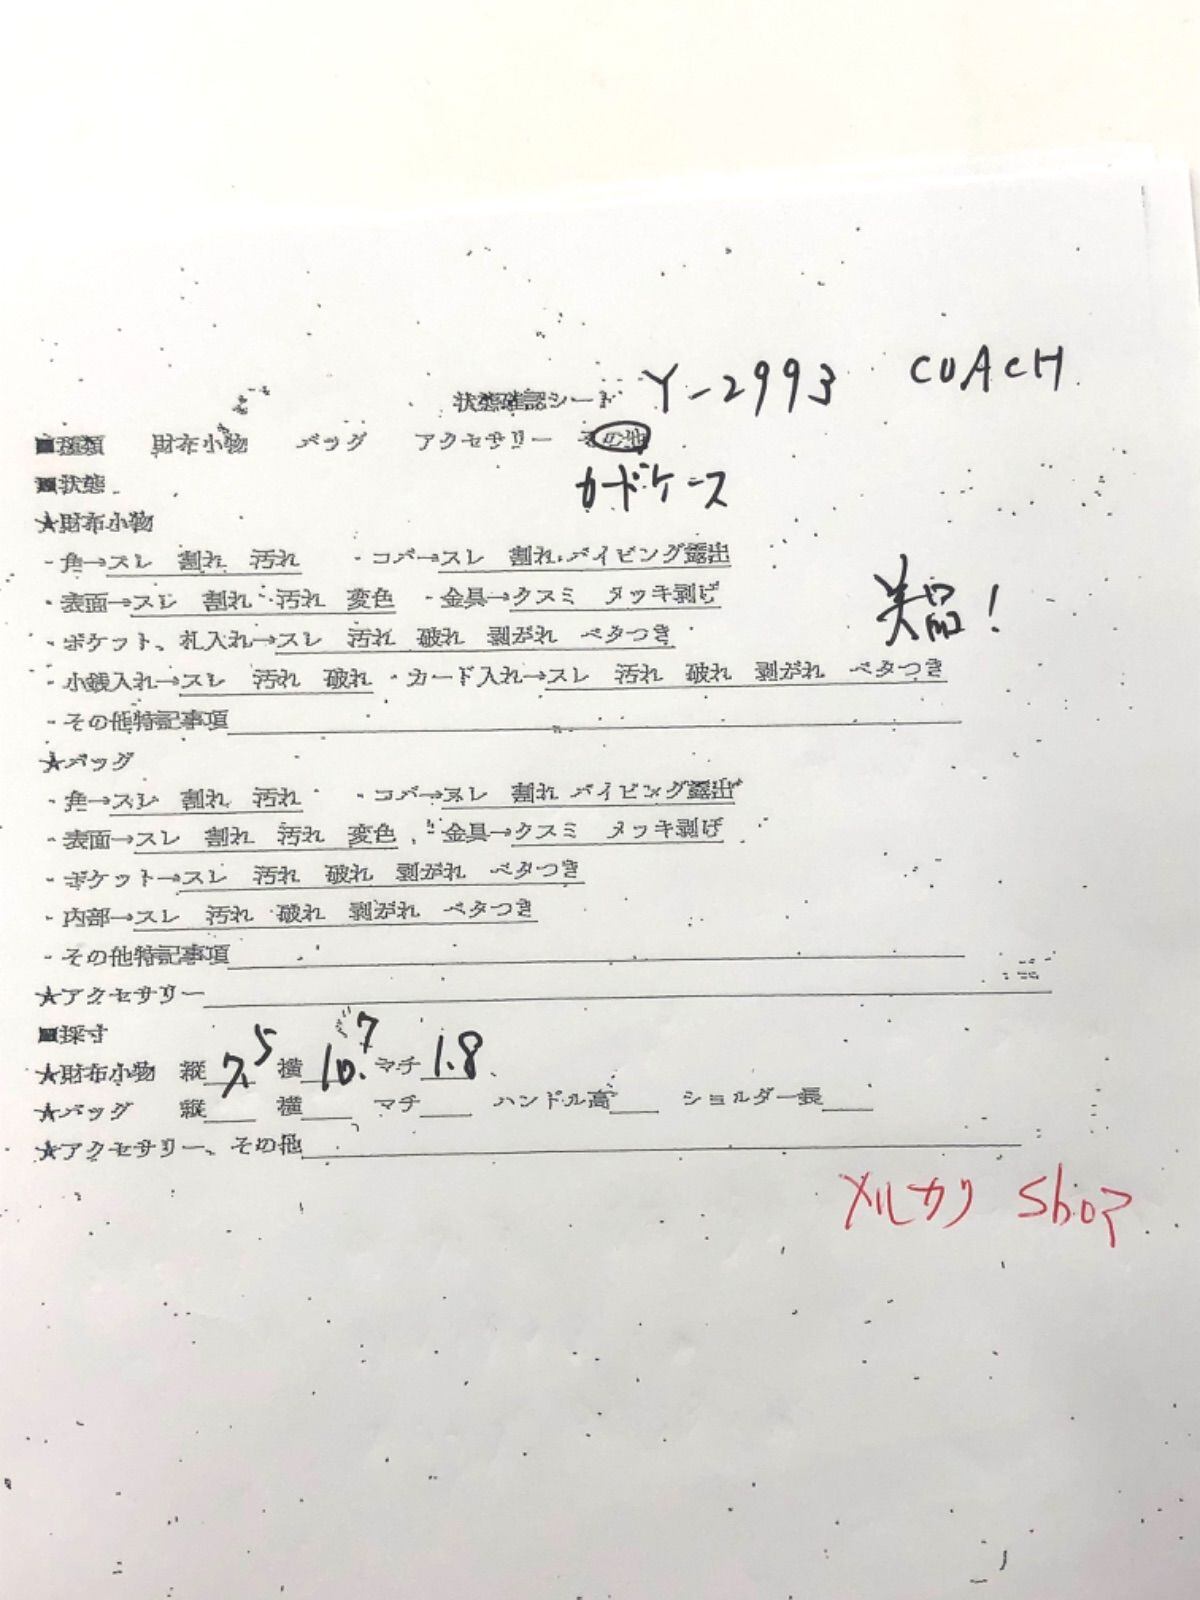 状態確認シート Y-2993 COACH
■種類 財布小物 バッグ アクセサリー その他
■状態 カードケース
★財布小物
・角→スレ 割れ 汚れ ・コバ→スレ 割れ パイピング露出
・表面→スレ 割れ 汚れ 変色 ・金具→クスミ メッキ剥げ
美品!
・ポケット、札入れ→スレ 汚れ 破れ 剥がれ ベタつき
・小銭入れ→スレ 汚れ 破れ ・カード入れ→スレ 汚れ 破れ 剥がれ ベタつき
・その他特記事項
★バッグ
・角→スレ 割れ 汚れ ・コバ→スレ 割れ パイピング露出
・表面→スレ 割れ 汚れ 変色 ・金具→クスミ メッキ剥げ
・ポケット→スレ 汚れ 破れ 剥がれ ベタつき
・内部→スレ 汚れ 破れ 剥がれ ベタつき
・その他特記事項
★アクセサリー
■採寸
★財布小物 縦 7.5 横 10.7 マチ 1.8
★バッグ 縦 横 マチ ハンドル高 ショルダー長
★アクセサリー、その他
メルカリ Shop